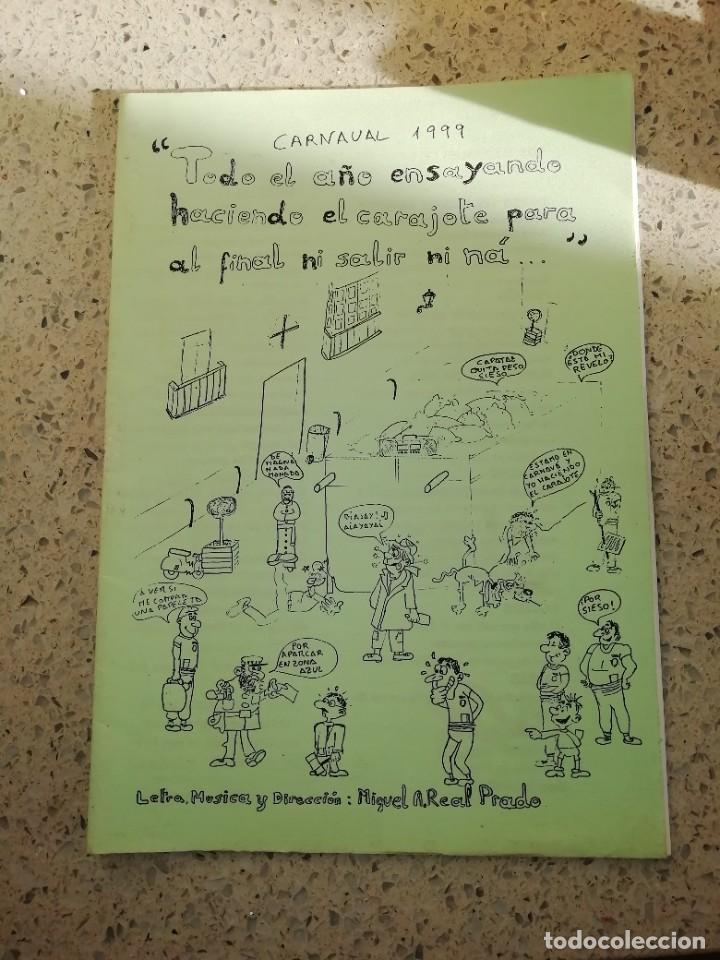 CARNAVAL 1999
"Todo el año ensayando
haciendo el carajote para
al final ni salir ni ná..."
CAPATAZ
QUITA PESO
SIESO
¿DONDE
ESTA MI
REVELO?
DE
MAGNA
NADA
MONADA
ESTAMO EN
CARNAVÁ Y
YO HACIENDO
EL CARAJOTE
AIAYAYAI
A VER SI
ME COMPRA
UNA PAPELETA
POR
APARCAR
EN ZONA
AZUL
¡POR
SIESO!
Letra, Musica y Dirección: Miguel A. Real Prado
todocoleccion